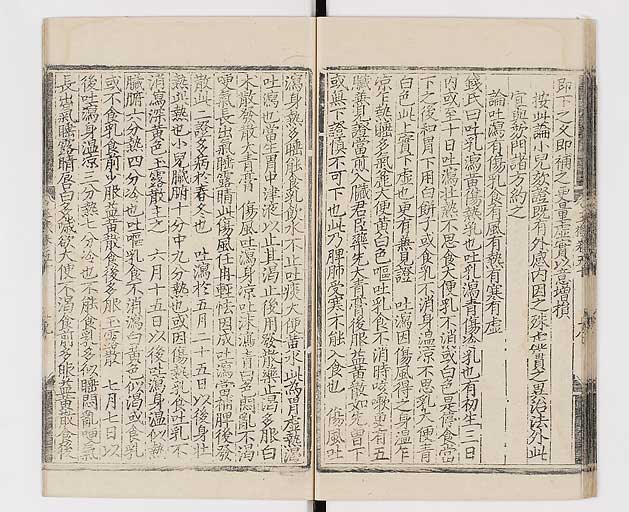 即下之又即補之更量虛實以意增損
按此論小兒欬證旣有外感內因之殊虛實之異治法外此
宜與務門諸方約之
論吐瀉有傷乳食有風有熱有寒有虛
錢氏曰吐乳瀉黃傷熱乳也吐乳瀉青傷冷乳也有初生三日
內或至十日吐瀉壯熱不思食大便乳不消或白色是停食當
下之後和胃下用白餠子或食乳不消身溫凉不思乳大便青
白色此上實下虛也更有兼見證 吐瀉因傷風得之身溫乍
凉乍熱睡多氣麤大便黃白色嘔吐乳食不消時咳嗽更有五
臟兼見證當煎入臟君臣藥先大青膏後服益黃散如先曾下
或無下證愼不可下也此乃脾肺受寒不能入食也 傷風吐
瀉身熱多睡能食乳飮水不止吐痰大便黃水此爲胃虛熱渴
吐瀉也當生胃中津液以止其渴止後用發散藥止渴多服白
朮散發散大青膏 傷風吐瀉身凉吐沫瀉青白色悶亂不渴
哽氣長出氣睡露睛此傷風荏苒輕怯因成吐瀉當補脾後發
散此二證多病於春冬也 吐瀉於五月二十五日以後身壯
熱此熱也小兒臟腑十分中九分熱也或因傷熱乳食吐乳不
消瀉深黃色玉露散主之 六月十五日以後吐瀉身溫似熱
臟腑六分熱四分冷也吐嘔乳食不消瀉白黃色似渴或食乳
或不食乳食前少服益黃散食後多服玉露散 七月七日以
後吐瀉身溫凉三分熱七分冷也不能食乳多似睡悶亂哽氣
長出氣睡露睛唇白多噦欲大便不渴食前多服益黃散食後